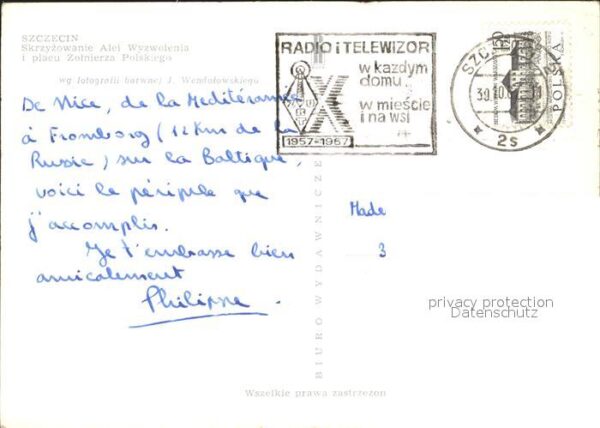 SZCZECIN
Skrzyżowanie Alei Wyzwolenia
i placu Żołnierza Polskiego
wg fotografii barwnej J.
De Nice, de la Mediterannée
à Fromborg (12 Km de la
Russie) sur la Baltique,
voici le périple que
j'accomplis.
Je t'embrasse bien
amicalement
Philippe.
RADIO i TELEWIZOR
w każdym
domu
w mieście
i na wsi
X
1957-1967
SZCZ
30.10.
2s
POLSKA
BIURO WYDAWNICZE
Made
3
privacy protection
Datenschutz
Wszelkie prawa zastrzeżon